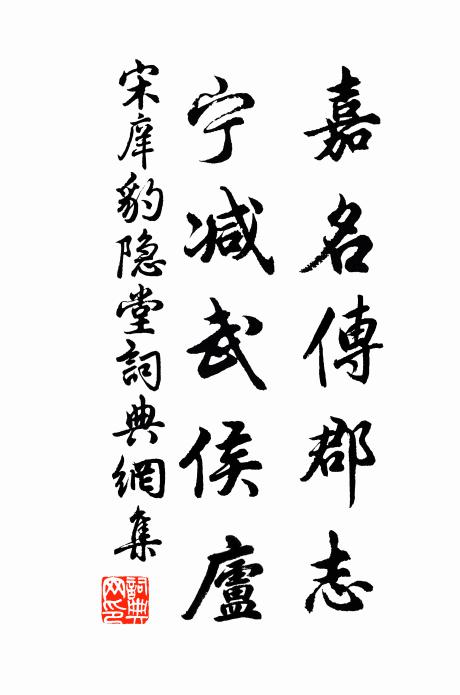 嘉名傳郡志
宁减武侯廬
宋庠豹隐堂詞典網集
詞典网印